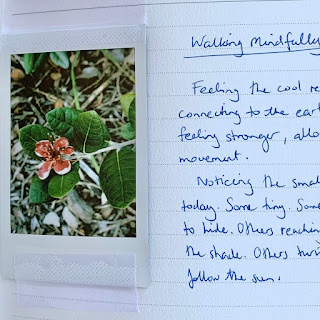 Walking Mindfully
Feeling the cool
connecting to the
feeling stronger,
movement.
Noticing the
today. Some tiny.
to hide. Others
the shade. Others
follow the sun.